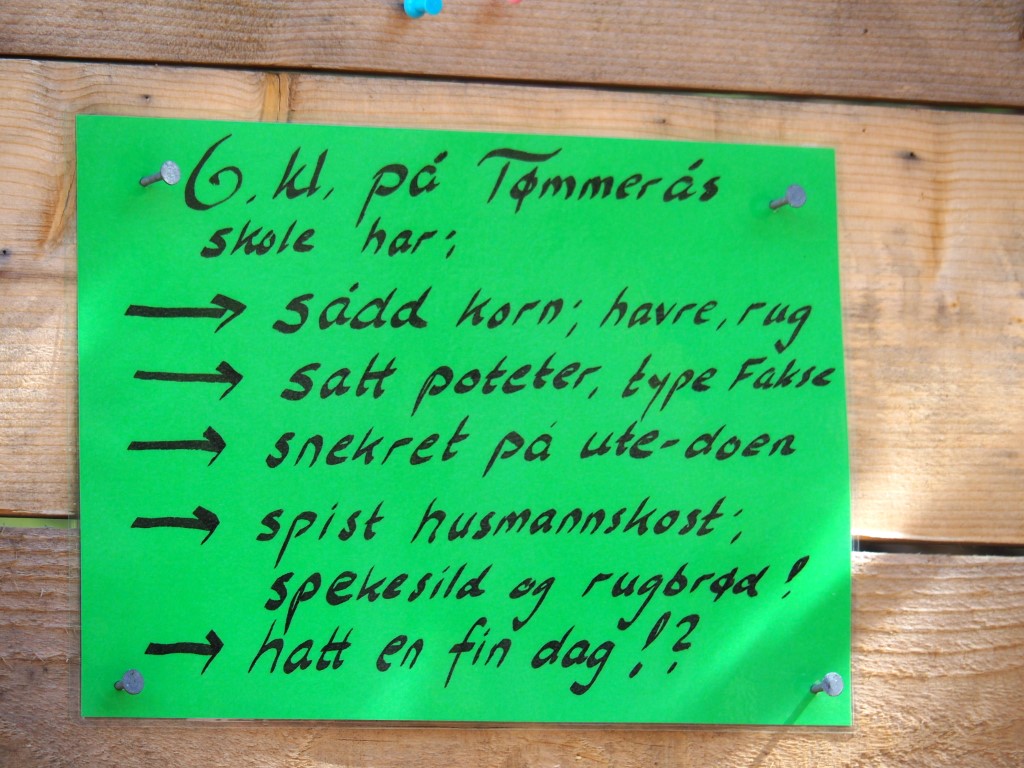 6. kl. på Tømmerås
skole har;
→ sådd korn; havre, rug
→ satt poteter, type Fakse
→ snekret på ute-doen
→ spist husmannskost;
spekesild og rugbrød!
→ hatt en fin dag!?